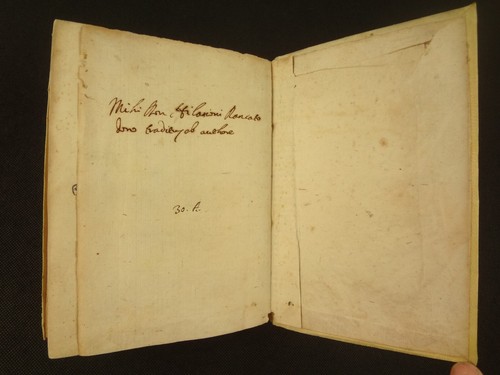 Mihi Don Hilarioni Rancato
dono traditus ab authore
30. A.